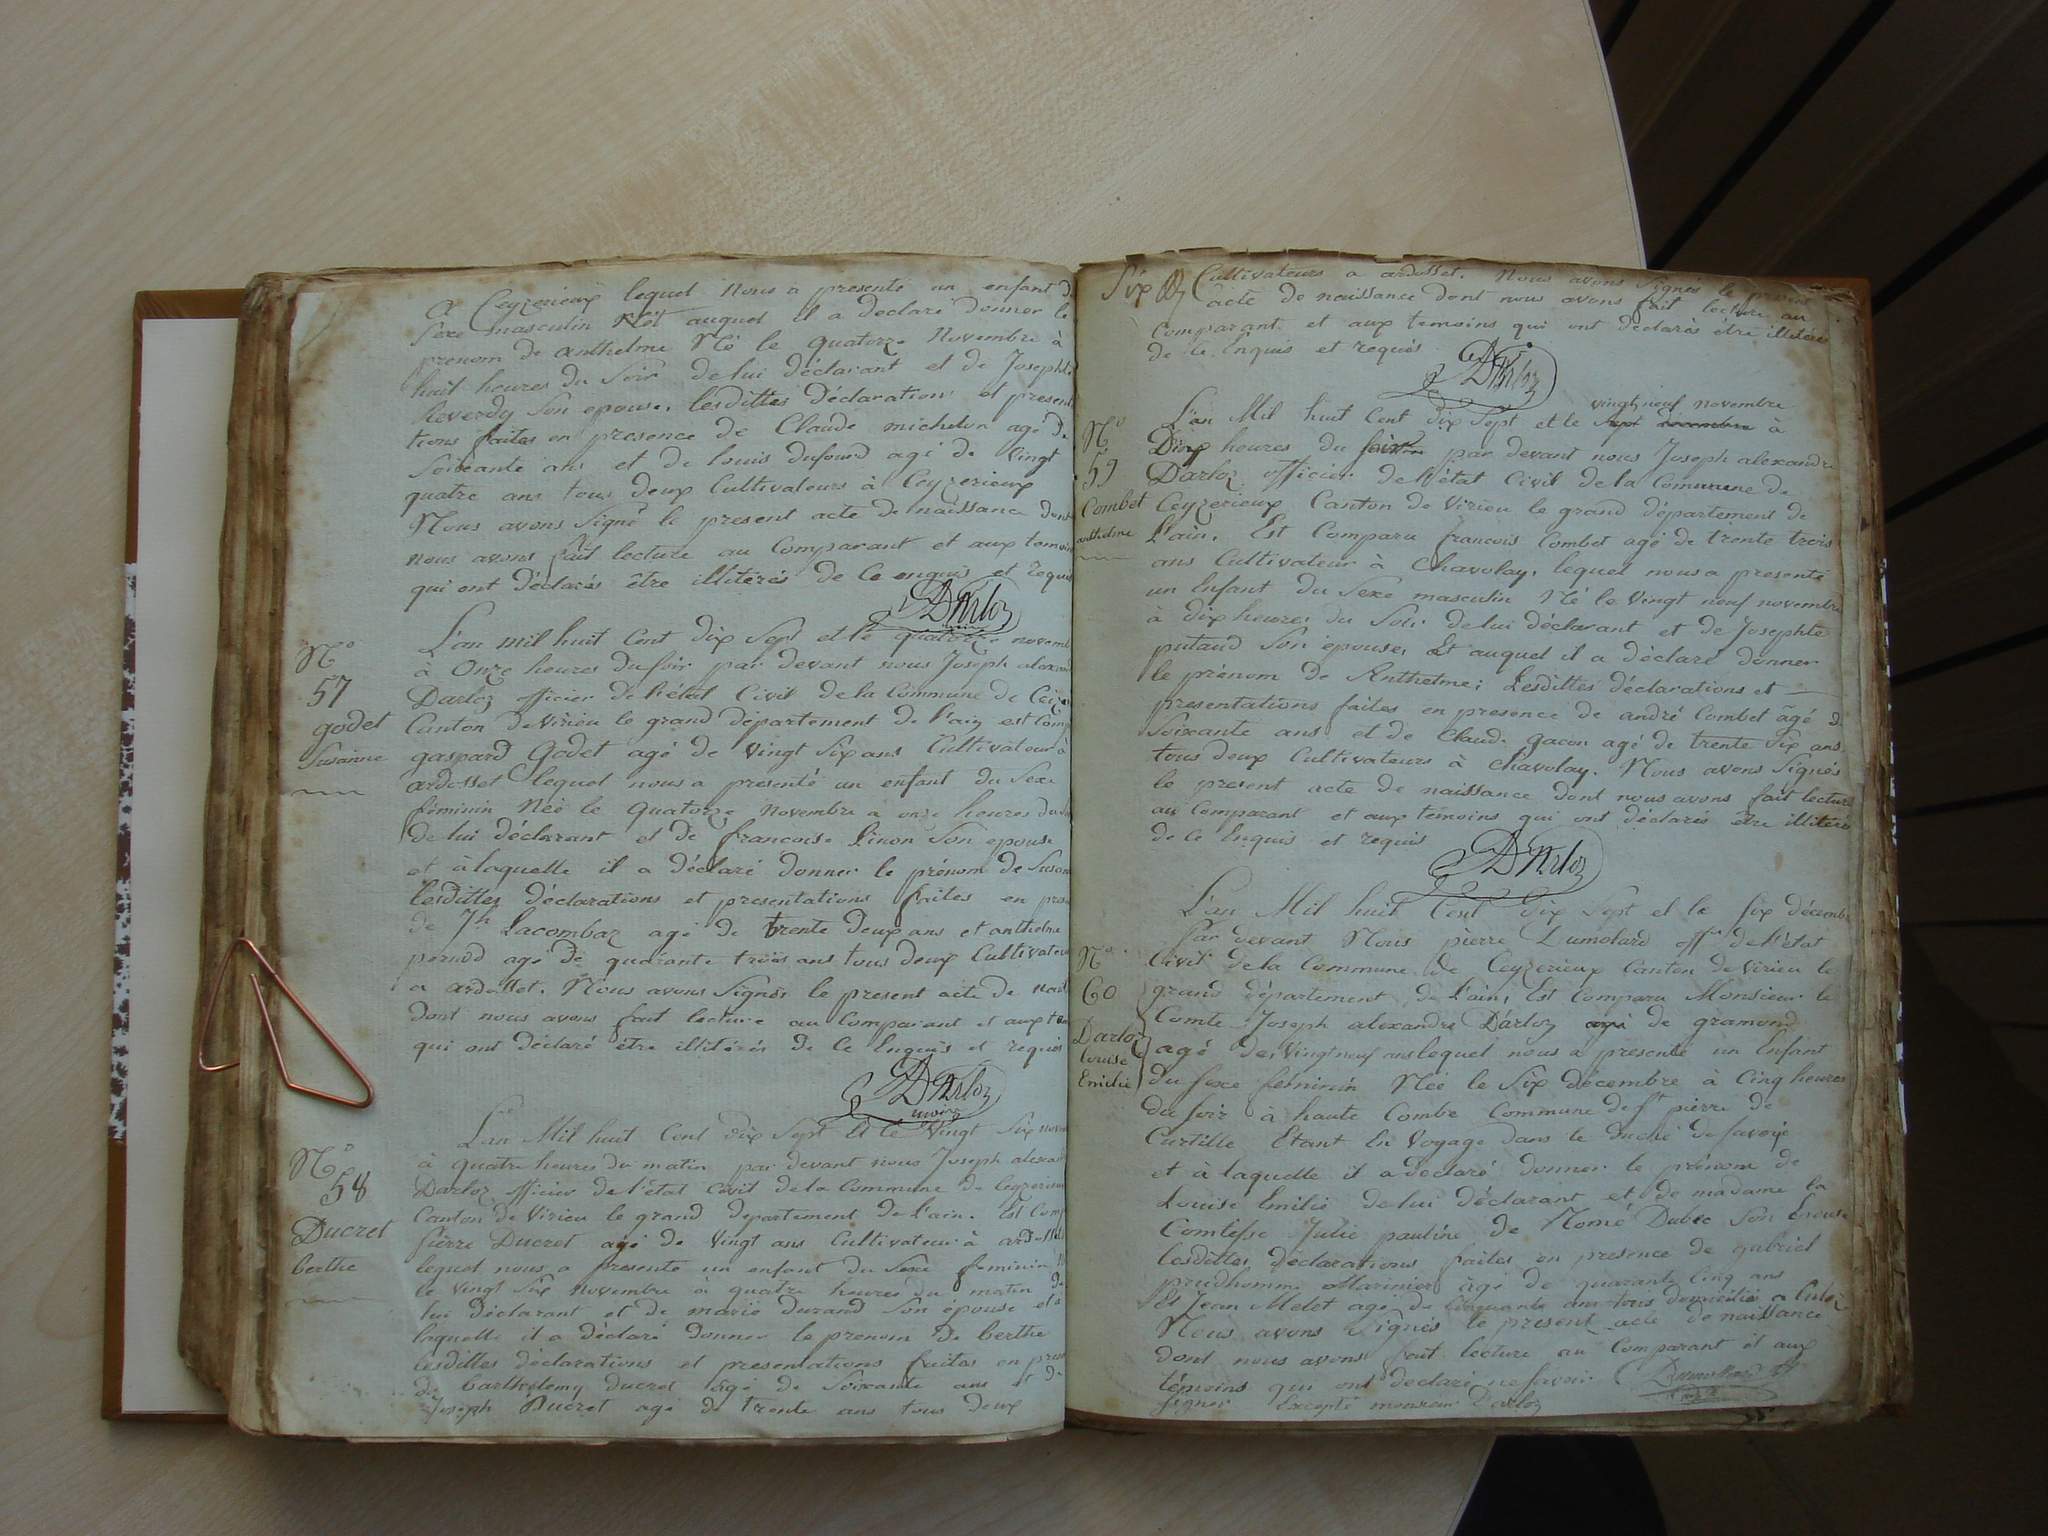 a Ceyzerieux lequel nous a presenté un enfant d
Sexe masculin et auquel il a declaré donner le
prenom de anthelme Né le quatorze Novembre à
huit heures du Soir de lui déclarant et de Josephte
Reverdy Son epouse, lesdittes déclarations et present
tions faites en presence de Claude michelon agé de
Soixante ans et de louis dufourd agé de Vingt
quatre ans tous deux Cultivateurs à Ceyzerieux
Nous avons Signé le present acte de naissance dont
nous avons fait lecture au Comparant et aux temoin
qui ont déclarés être illitérés de Ce enquis et requis
Darloz
maire
N°
57
godet
Susanne
L'an mil huit Cent dix Sept et le quatorze novemb
à Onze heures du Soir par devant nous Joseph alexan
Darloz officier de l'état Civil de la Commune de Ceize
Canton de Virieu le grand département de l'ain est Comp
gaspard Godet agé de Vingt Six ans Cultivateur à
ardosset lequel nous a presenté un enfant du Sexe
féminin Née le Quatorze Novembre a onze heures du
de lui déclarant et de francoise Son epouse
et à laquelle il a déclaré donner le prénom de Susan
lesdittes déclarations et presentations faites en pres
de Jh Lacombaz agé de trente deux ans et anthelme
pernod agé de quarante trois ans tous deux Cultivateu
a ardosset. Nous avons Signés le present acte de nais
dont nous avons fait lecture au Comparant et aux tem
qui ont déclaré être illitérés de Ce Enquis et requis
Darloz
maire
N°
58
Ducret
berthe
L'an Mil huit Cent dix Sept Et le Vingt Six novem
à quatre heures du matin par devant nous Joseph alexan
Darloz officier de l'état Civil de la Commune de Ceyzerieu
Canton de Virieu le grand departement de l'ain. Est Comp
pierre Ducret agé de Vingt ans Cultivateur à ardosset
lequel nous a presenté un enfant du Sexe feminin
le vingt Six Novembre à quatre heures du matin de
lui déclarant et de marie durand Son épouse et à
laquelle il a déclaré donner le prenom de berthe
lesdittes déclarations et presentations faites en pres
de barthelemy ducret agé de Soixante ans et de
Joseph Ducret agé de trente ans tous deux
Six Cultivateurs a ardosset. Nous avons Signés le présent
acte de naissance dont nous avons fait lecture au
Comparant et aux temoins qui ont déclarés être illitérés
de Ce Enquis et requis
Darloz
N°
59
Combet
anthelme
vingt neuf novembre
L'an Mil huit Cent dix Sept et le sept décembre à
Dix heures du soir par devant nous Joseph alexandre
Darloz officier de l'état Civil de la Commune de
Ceyzerieux Canton de Virieu le grand département de
L'ain. Est Comparu francois Combet agé de trente trois
ans Cultivateur à Chavolay, lequel nous a presenté
un Enfant du Sexe masculin Né le Vingt neuf novembre
à dix heures du Soir de lui déclarant et de Josephte
putaud Son épouse, Et auquel il a déclaré donner
le prénom de Anthelme; Lesdittes déclarations et
presentations faites en presence de andré Combet âgé de
Soixante ans et de Claude gacon agé de trente Six ans
tous deux Cultivateurs à Chavolay. Nous avons Signés
le present acte de naissance dont nous avons fait lecture
au Comparant et aux témoins qui ont déclarés être illitérés
de Ce Enquis et requis
Darloz
N°
60
Darloz
louise
Emilie
L'an Mil huit Cent dix Sept et le Six décembre
Par devant Nous pierre Dumolard offer de l'état
Civil de la Commune de Ceyzerieux Canton de Virieu le
grand département de l'ain, Est Comparu Monsieur le
Comte Joseph alexandre Darloz agé de gramond
agé de Vingt neuf ans lequel nous a presenté un Enfant
du Sexe féminin Née le Six décembre à Cinq heures
du Soir à haute Combe Commune de St pierre de
Curtille Etant En Voyage dans le duché de Savoye
et à laquelle il a déclaré donner le prénom de
Louise Emilie de lui déclarant et de madame la
Comtesse Julie pauline de Nomé Dubec Son Epouse
lesdittes déclarations faites en presence de gabriel
prudhomme Marinier agé de quarante Cinq ans
Et Jean Melet agé de Cinquante ans tous domiciliés a Culoz
Nous avons Signés le present acte de naissance
dont nous avons fait lecture au Comparant et aux
témoins qui ont declaré ne Savoir
Signer Excepté monsieur Darloz